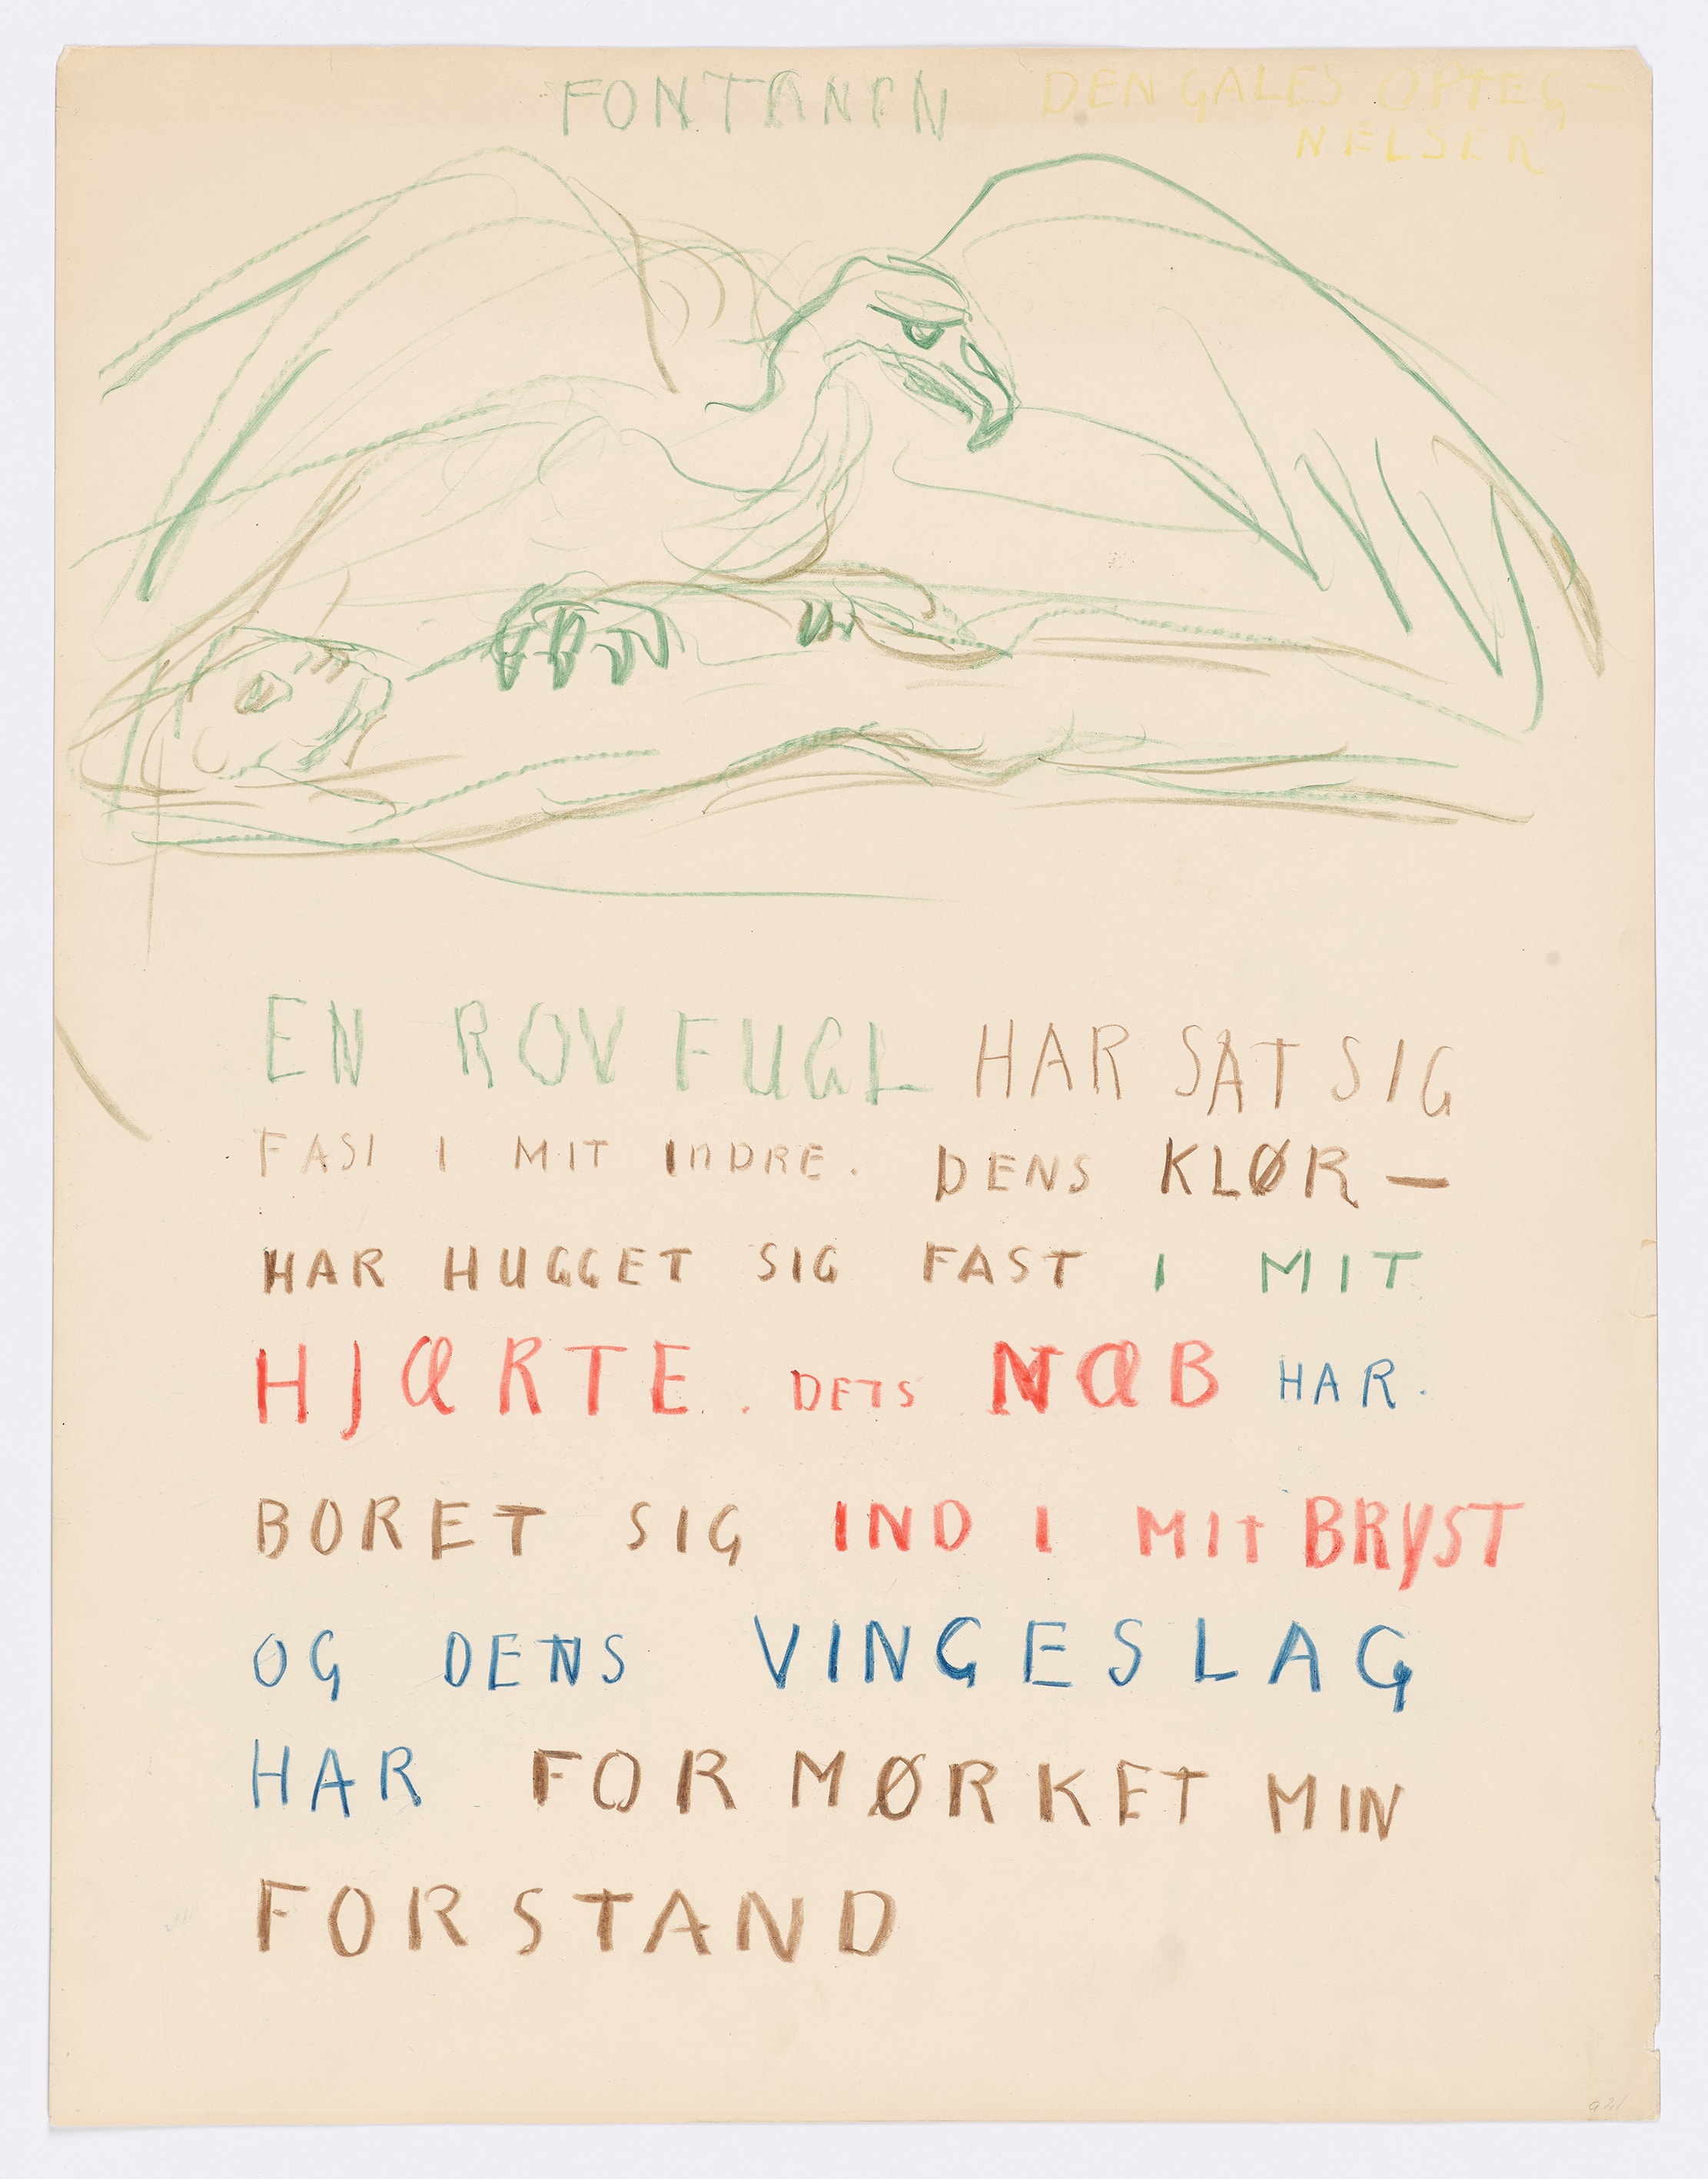 FONTÆNEN DEN GALES OPTEG-
NELSER
EN ROVFUGL HAR SAT SIG
FAST I MIT INDRE. DENS KLØR —
HAR HUGGET SIG FAST I MIT
HJÆRTE. DETS NÆB HAR.
BORET SIG IND I MIT BRYST
OG DENS VINGESLAG
HAR FORMØRKET MIN
FORSTAND